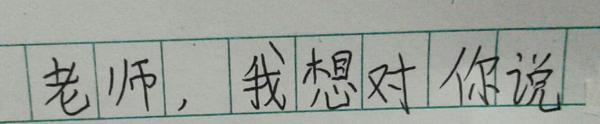 老师，我想对你说